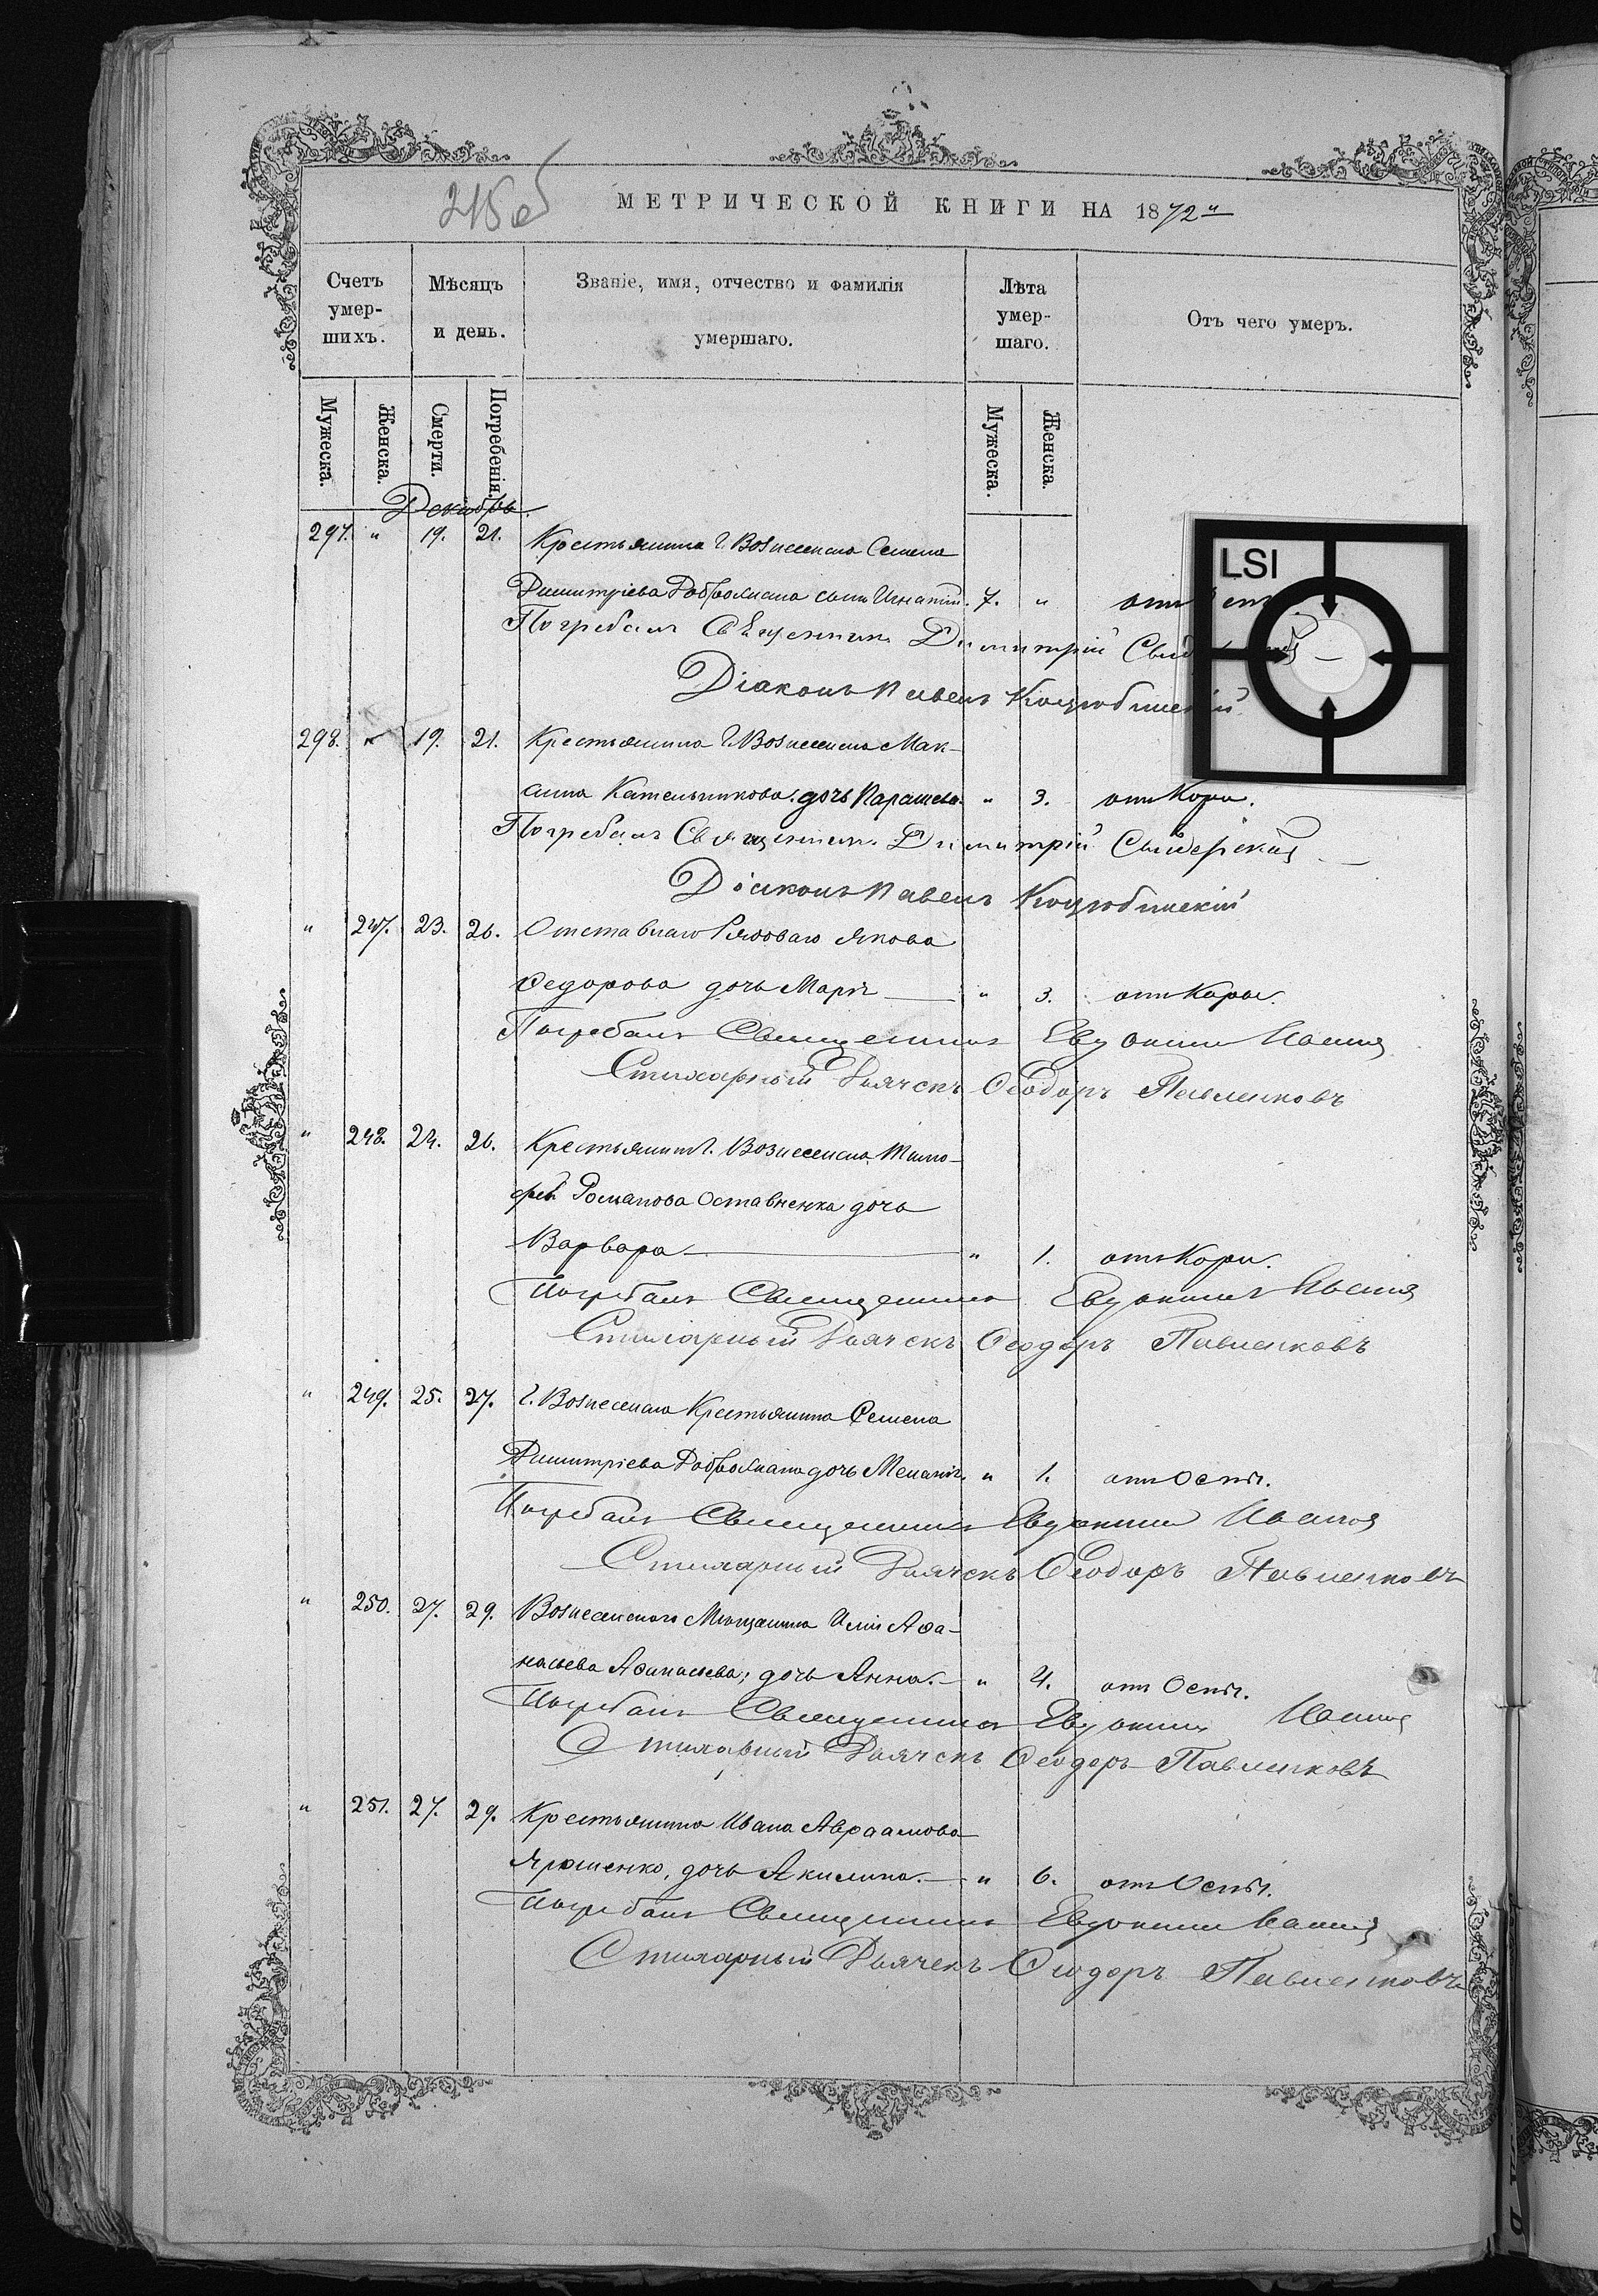 МЕТРИЧЕСКОЙ КНИГИ НА 1872
Счетъ умер-шихъ.
Мѣсяцъ и день.
Званіе, имя, отчество и фамилія умершаго.
Лѣта умер-шаго.
Отъ чего умеръ.
Мужеска.
Женска.
Смерти.
Погребенія.
Мужеска.
Женска.
Декабрь.
297. " 19. 21. Крестьянина г. Вознесенска Семена
Димитріева Доброжана сынъ Игнатій. 7. " отъ
LSI
Погребалъ Священникъ Димитрій
Діаконъ Павелъ Коцюбинскій
298. 19. 21. Крестьянина г. Вознесенска Мак-
сима Кательникова. дочь Параскева. " 3. отъ Кори.
Погребалъ Священник. Димитрій
Діаконъ Павелъ Коцюбинскій
" 247. 23. 26. Отставнаго Рядоваго Якова
Федорова дочь Марія " 3. отъ Кори.
Погребалъ Священникъ Евдокимъ
Стихарный Дьячекъ Ѳеодоръ Павленковъ
" 248. 24. 26. Крестьянина г. Вознесенска Тимо-
фея Романова дочь
Варвара " 1. отъ Кори.
Погребалъ Священникъ Евдокимъ
Стихарный Дьячекъ Ѳеодоръ Павленковъ
" 249. 25. 27. г. Вознесенска Крестьянина Семена
Димитріева Доброжана дочь Меланія. " 1. отъ Оспы.
Погребалъ Священникъ Евдокимъ
Стихарный Дьячекъ Ѳеодоръ Павленковъ
" 250. 27. 29. Вознесенскаго Мѣщанина Иліи Аѳа-
насьева Аѳанасьева; дочь Анна. " 4. отъ Оспы.
Погребалъ Священникъ Евдокимъ
Стихарный Дьячекъ Ѳеодоръ Павленковъ
" 251. 27. 29. Крестьянина Ивана Авраамова
Ярошенко, дочь Акилина. " 6. отъ Оспы.
Погребалъ Священникъ Евдокимъ
Стихарный Дьячекъ Ѳеодоръ Павленковъ